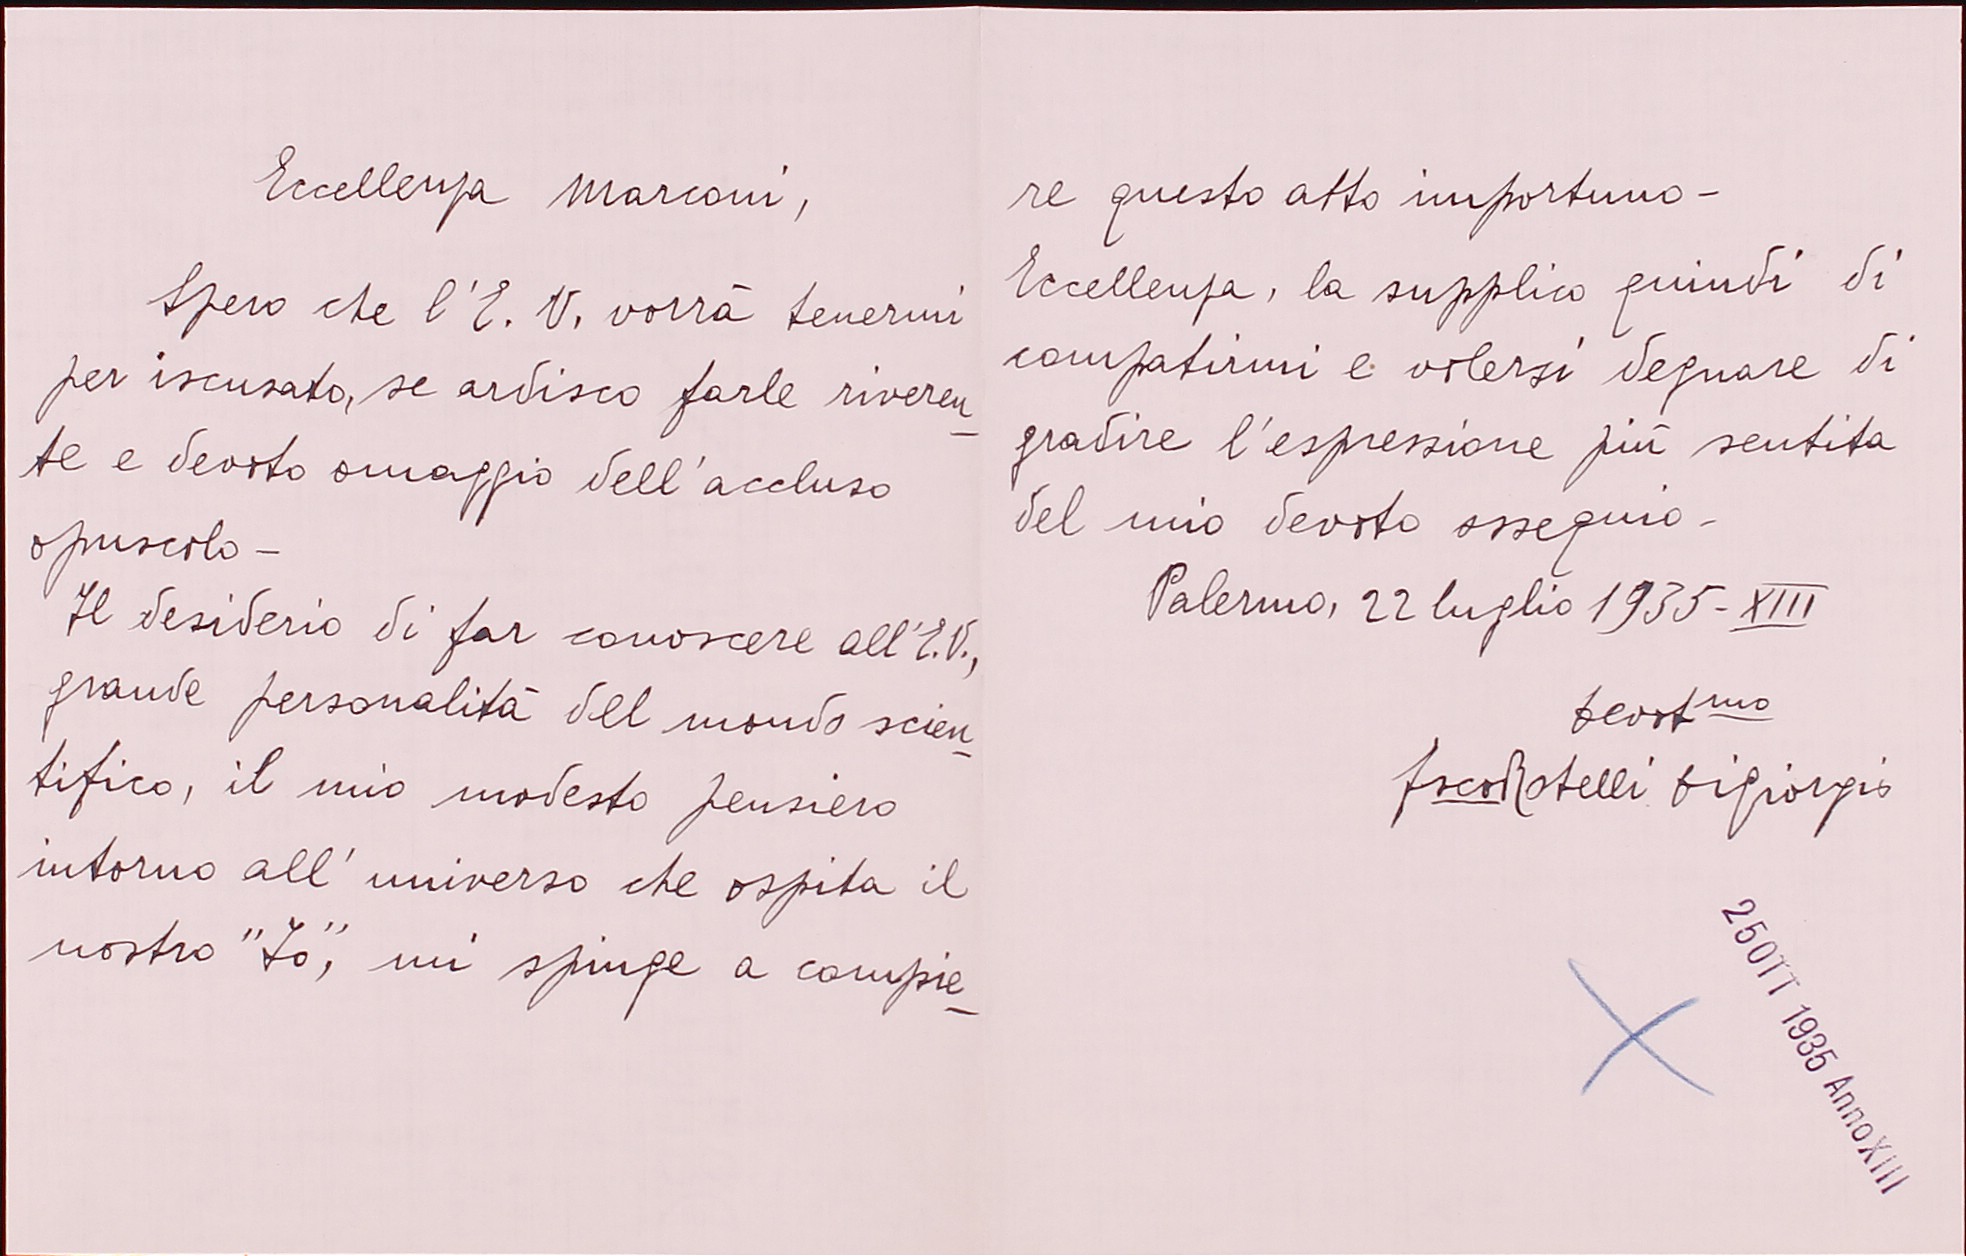 Eccellenza Marconi,
Spero che l'E. V. vorrà tenermi
per iscusato, se ardisco farle riveren-
te e devoto omaggio dell'accluso
opuscolo -
Il desiderio di far conoscere all'E.V.,
grande personalità del mondo scien-
tifico, il mio modesto pensiero
intorno all'universo che ospita il
nostro "Io", mi spinge a compie-
re questo atto importuno -
Eccellenza, la supplico quindi di
compatirmi e volersi degnare di
gradire l'espressione più sentita
del mio devoto ossequio -
Palermo, 22 luglio 1935 - XIII
devotmo
Fsco Rotelli di Giorgio
25 OTT 1935 Anno XIII